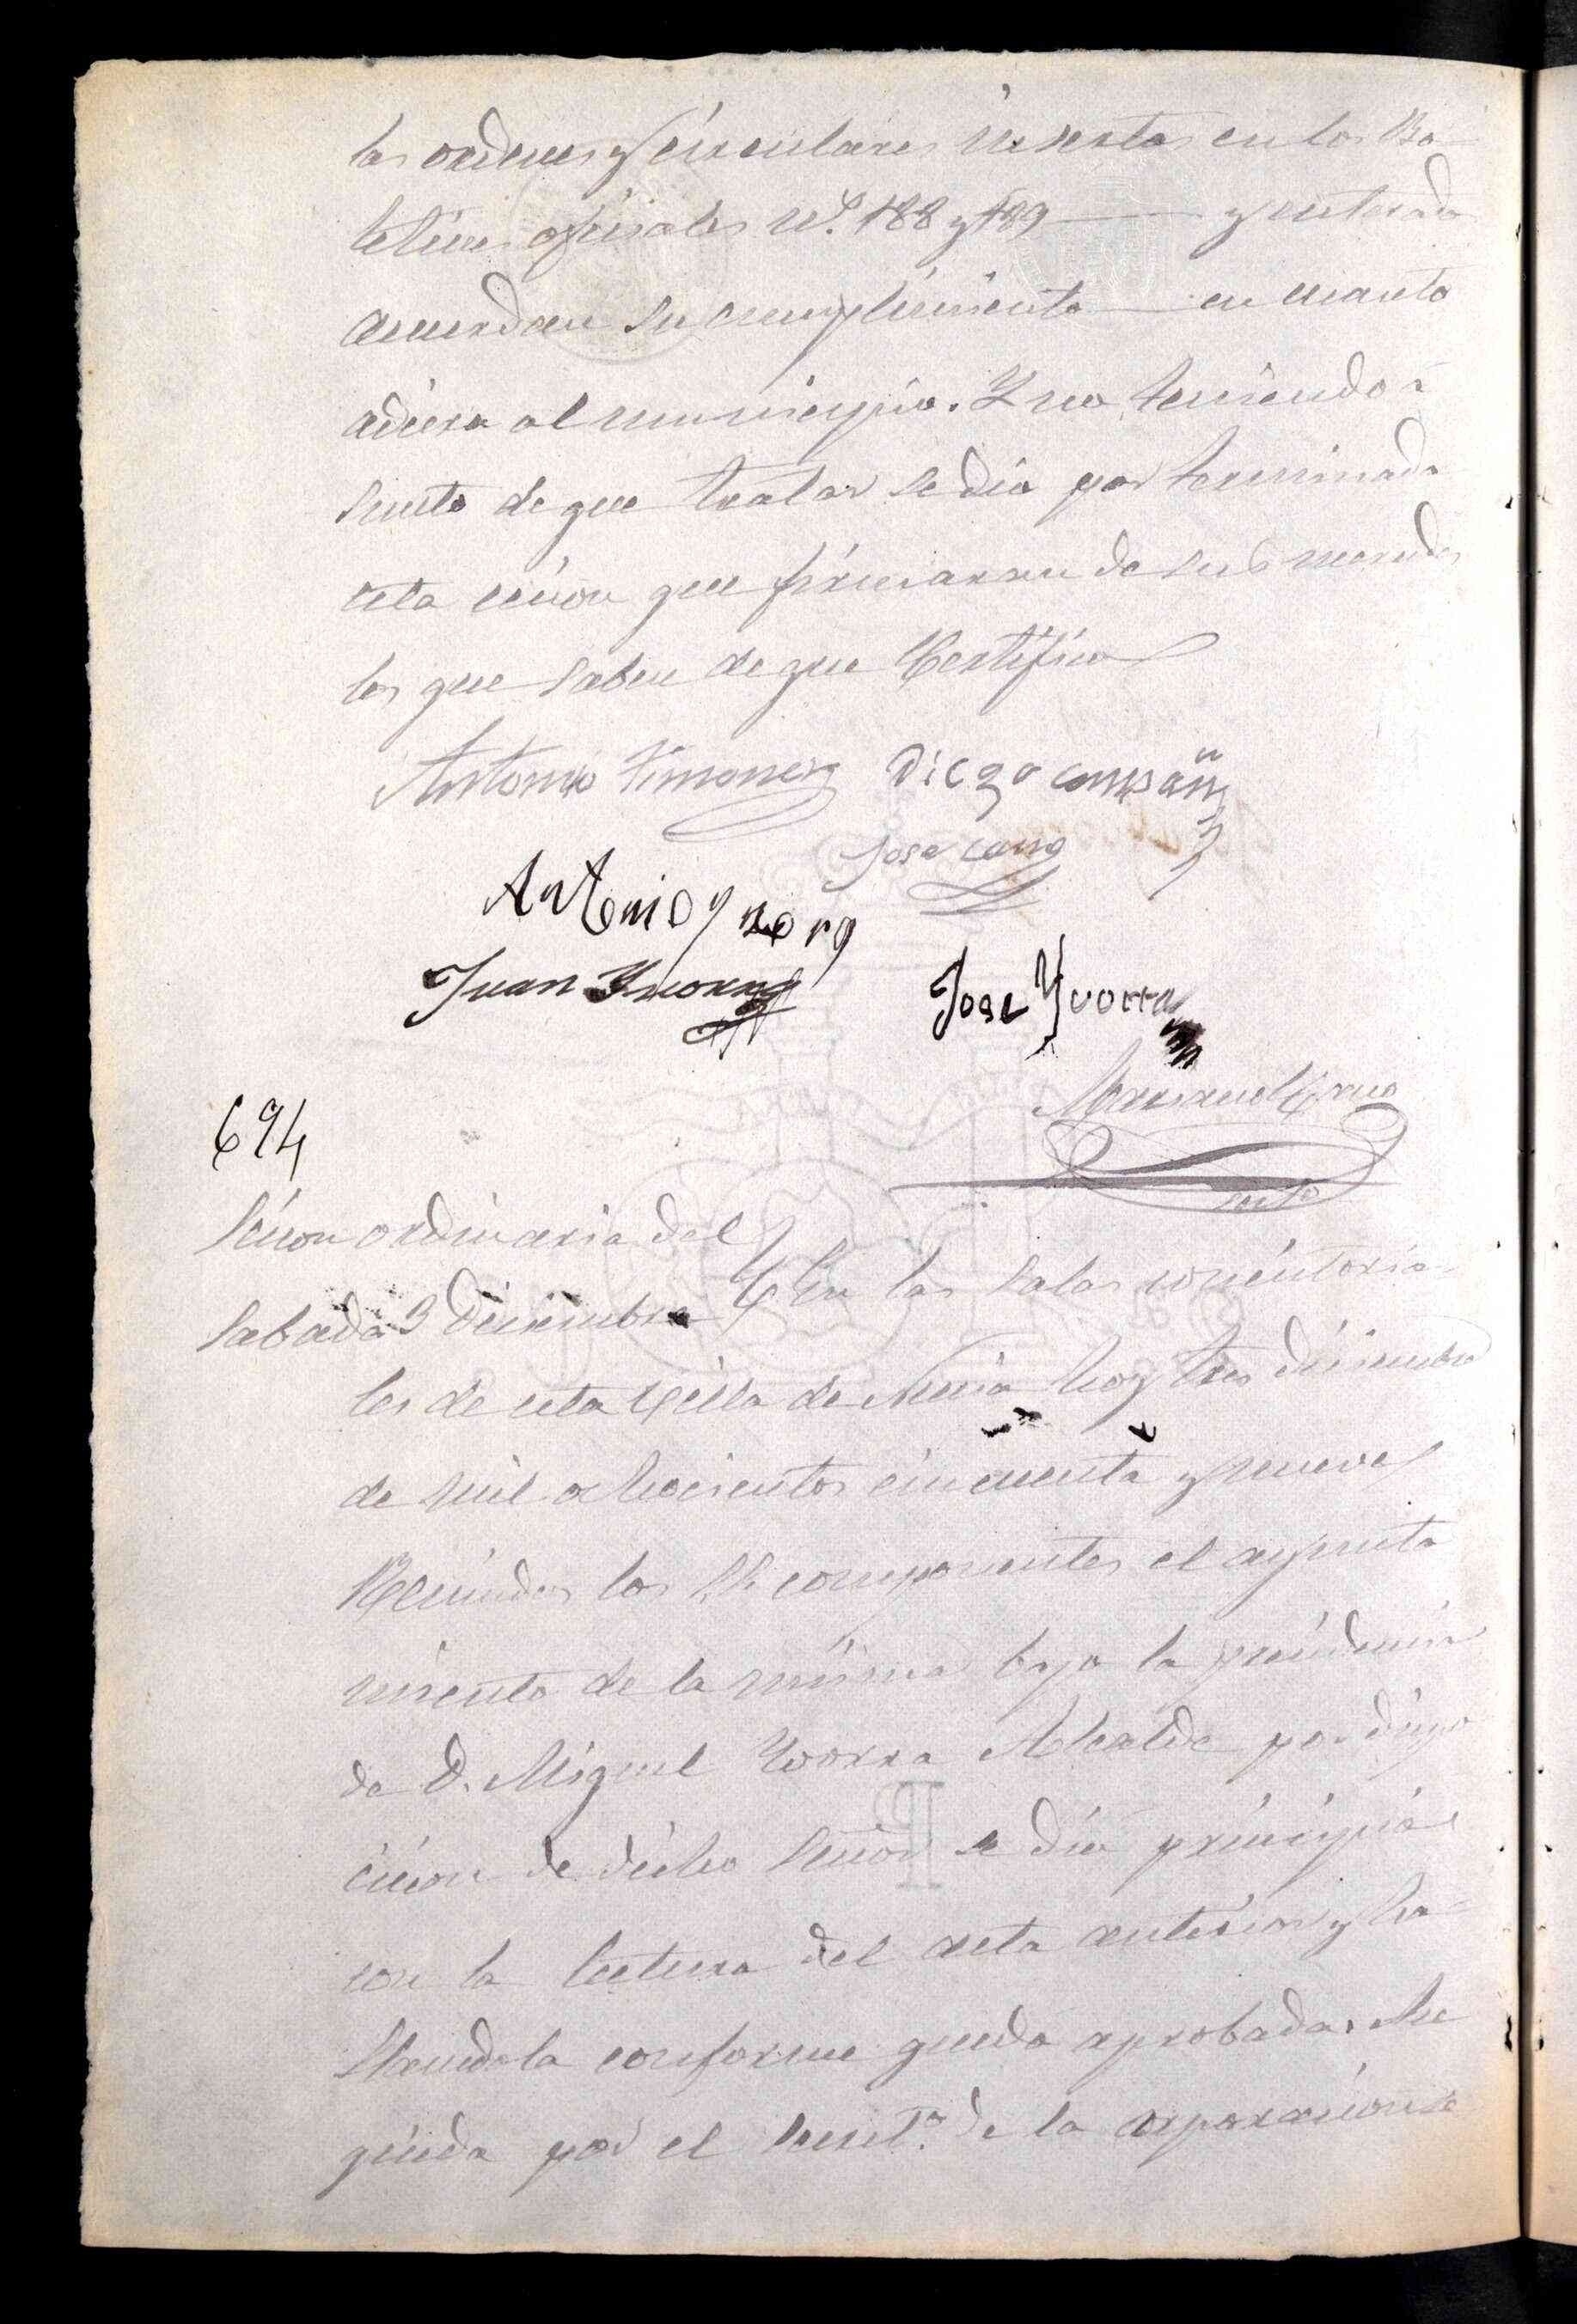 las ordenes y circulares insertas en los Bo-
letines oficiales n.º 188 y 189 — y enterados
acuerdan su cumplimiento — en cuanto
adiera al municipio. Y no teniendo a-
sunto de que tratar se dio por terminada
esta cecion que firmaran de sus mercedes
los que saben de que Certifico
Antonio Ximenez Diego compañ
Jose cano
Antonio yvorra
Juan Yvorra
Jose Yvorra
Manuel Cano
Secrt.º
694
Secion ordinaria del
Sabado 3 Diciembre } En las salas concistoria-
les de esta Villa de Nucia hoy tres Diciembre
de mil ochocientos cincuenta y nueve
Reunidos los SS. componentes el ayunta
miento de la misma bajo la precidencia
de D. Miguel Yvorra Alcalde por dispo
cicion de dicho Señor se dio principio
con la lectura del acta anterior y ha-
llandola conforme queda aprobada. Se
guida por el Secret.º de la corporacion se